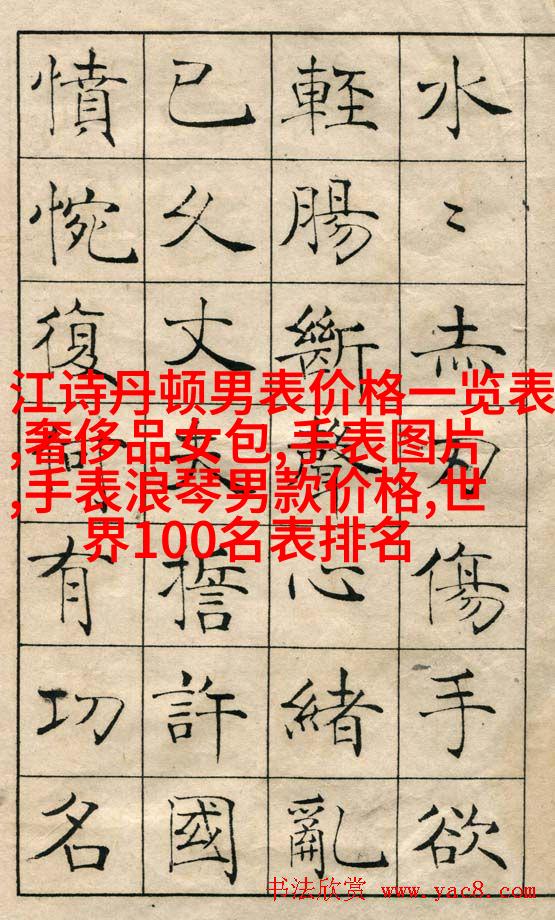 水〻赤刃傷手欲
輕腸斷聲心緒亂
已久丈夫誓許國
憤惋復何有功名
江诗丹顿男表价格一览表
,奢侈品女包,手表图片
,手表浪琴男款价格,世
界100名表排名
书法欣赏 www.yac8.com